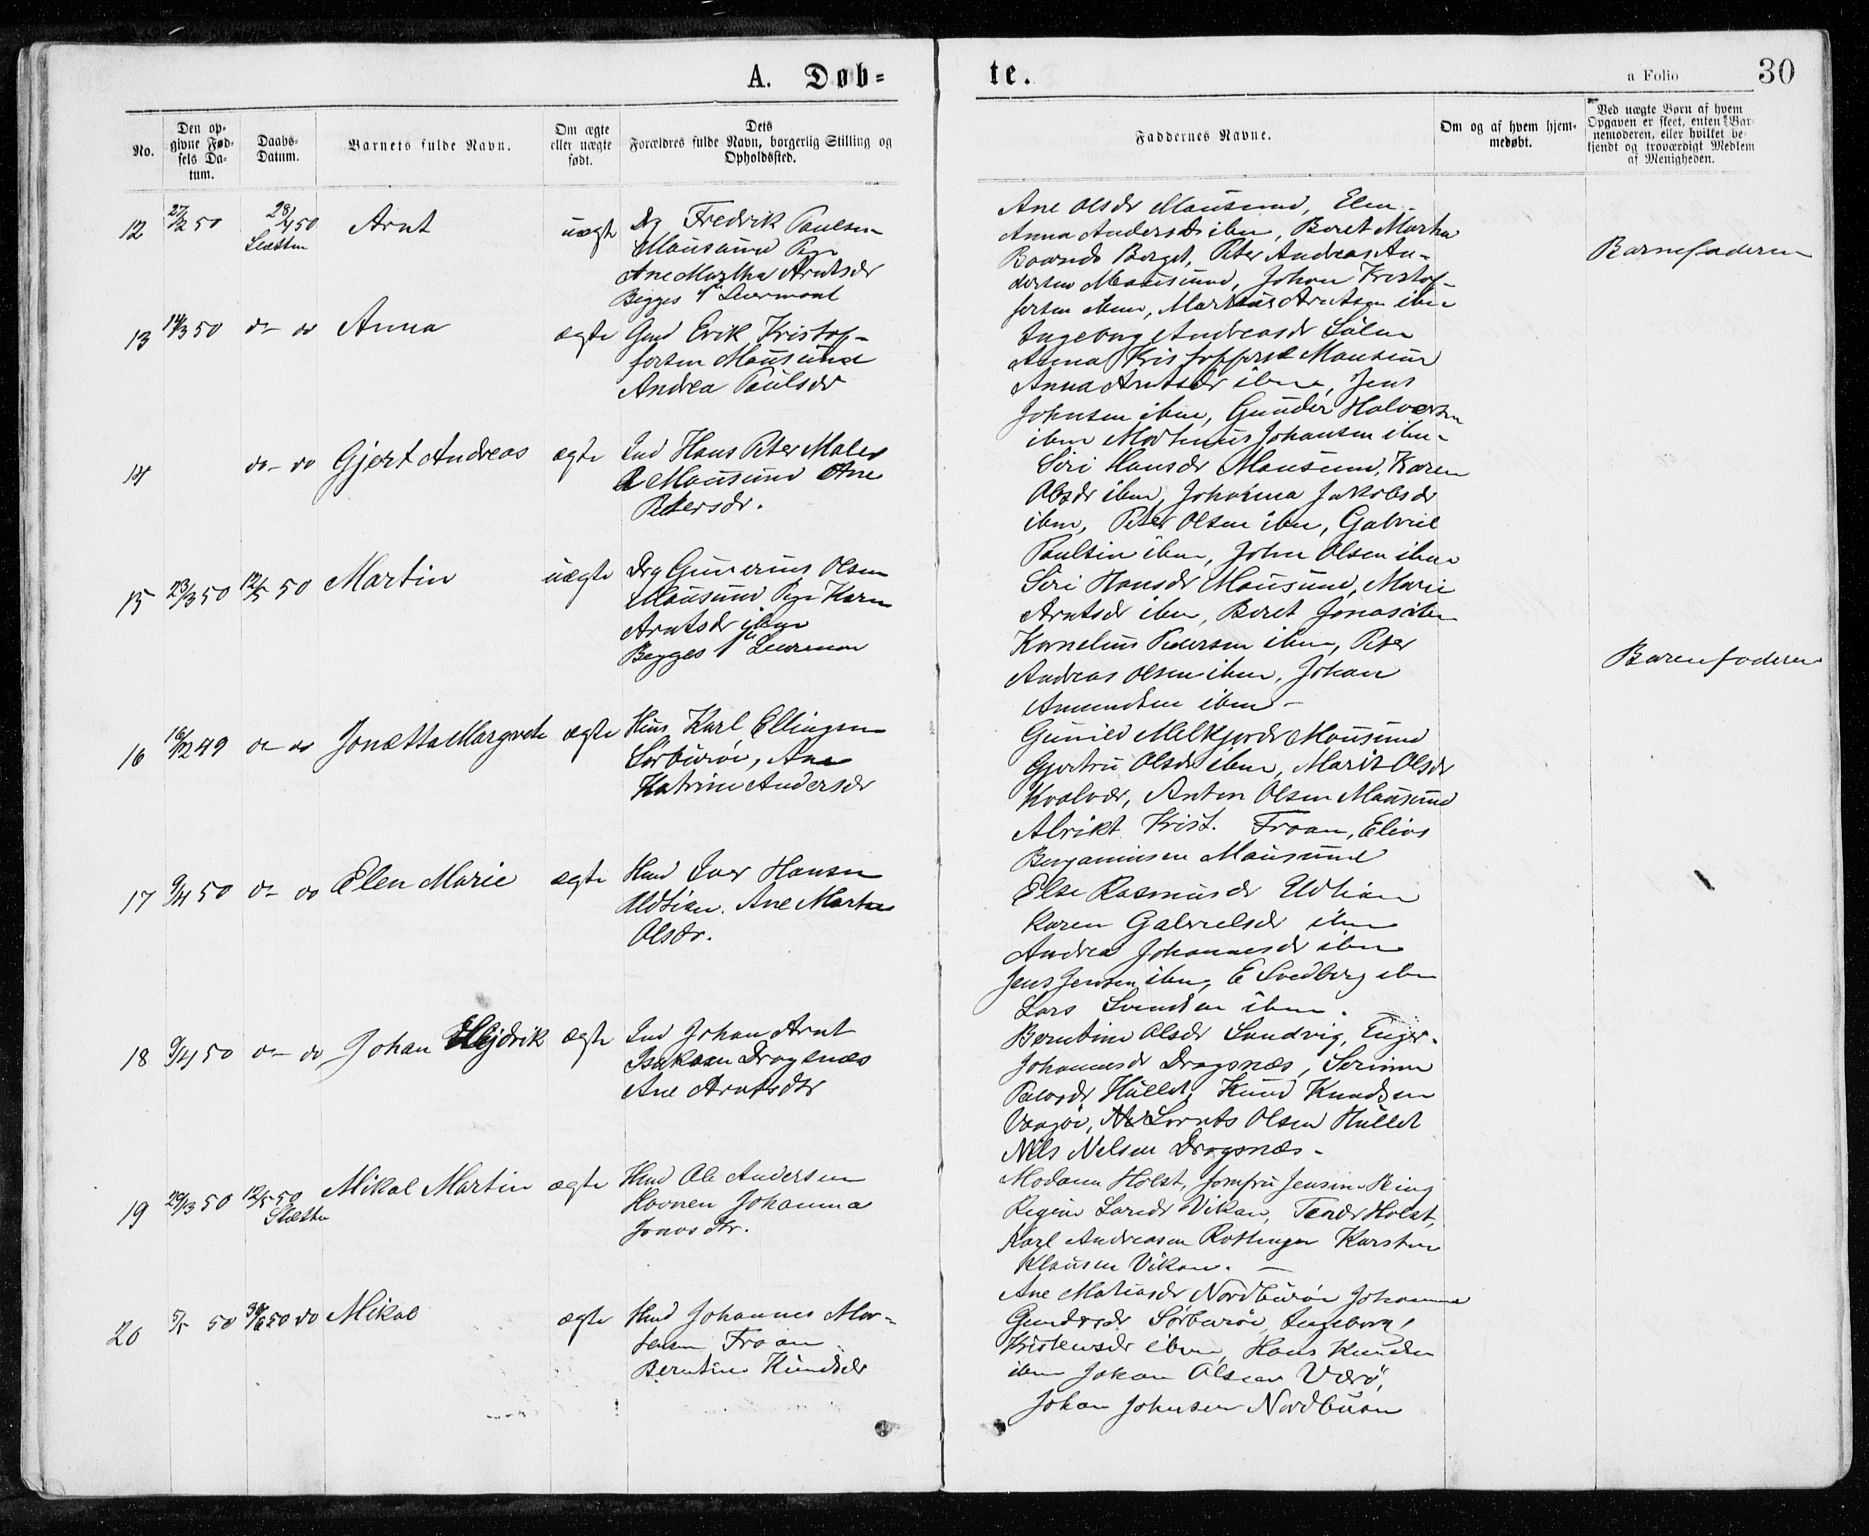 A. Døb-
te.
a Folio
30
No.
Den op-
givne Fød-
sels Da-
tum.
Daabs-
Datum.
Barnets fulde Navn.
Om ægte
eller uægte
født.
Dets
Forældres fulde Navn, borgerlig Stilling og
Opholdssted.
Faddernes Navne.
Om og af hvem hjem-
medøbt.
Ved uægte Børn af hvem
Opgaven er skeet, enten Bar-
nemoderen, eller hvilket be-
kjendt og troværdigt Medlem
af Menigheden.
12
27/2 50
28/4 50
Slætten
Arnt
uægte
Drg Fredrik Paulsen
Mausund Pige
Ane Martha Arntsdr
Begges 1ste Leiermaal
Ane Olsdr Mausund, Elen
Anna Andersd ibm, Beret Martha
Berget, Peter Andreas An-
dersen Mausund, Johan Kristof-
fersen ibm, Martinus Arntsen ibm
Barnefaderen
13
14/3 50
do do
Anna
ægte
Gmd Erik Kristof-
fersen Mausund
Andrea Paulsdr
Ingeborg Andreasdr Sulen
Anna Kristoffersd Mausund
Anna Arntsdr ibm, Jens
Johnsen ibm, Gunder Halvorsen
ibm Johansen ibm
14
do do
Gjert Andreas
ægte
Ind Hans Peter
Mausund Ane
Petersdr.
Siri Hansdr Mausund, Karen
Olsdr ibm, Johanna Jakobsdr
ibm, Peter Olsen ibm, Gabriel
Paulsen ibm, John Olsen ibm
15
23/3 50
12/5 50
Martin
uægte
Drg Gunerius Olsen
Mausund Pige Karen
Arntsdr ibm
Begges 1ste Leierm
Siri Hansdr Mausund, Marie
Arntsdr ibm, Beret Jonasd ibm
Kornelius Pedersen ibm, Peter
Andreas Olsen ibm, Johan
Amundsen ibm
Barnefaderen
16
16/12 49
do do
Jonætta Margrete
ægte
Hms Karl Ellingsen
Sørburøi, Ane
Katrine Andersdr
Gunild Melkjordr Mausund
Gjertru Olsdr ibm, Marit Olsdr
Kvalvær, Anton Olsen Mausund
Alrikt Krist. Froan, Elias
Benjaminsen Mausund
17
9/4 50
do do
Elen Marie
ægte
Hmd Iver Hansen
Udtian. Ane Martha
Olsdr.
Else Rasmusdr Udtian
Karen Gabrielsdr ibm
Andrea Johannesdr ibm
Jens Jensen ibm, E Svedberg ibm
Lars Svendsen ibm.
18
9/4 50
do do
Johan
ægte
Ind Johan Arnt
Isaksen Dragsnæs
Ane Arntsdtr
Berntine Olsdr Sandvig, Inger
Johannesdr Dragsnæs, Serinna
Hallet, Knud Knudsen
Vaagøi, Lornts Olsen Hallet
Nils Nelsen Dragsnæs.
19
29/3 50
12/5 50
Slætten
Mikal Martin
ægte
Hmd Ole Andersen
Havnen Johanna
Jonasdtr.
Madam Holst, Jomfru Jensine Ring
Regine Larsdr Vikan, Holst,
Karl Andreasen Rottingen Karsten
Klausen Vikan.
20
5/5 50
30/6 50 do
Mikal
ægte
Hmd Johannes Mor-
tensen Froan
Berntine Knudsdr
Ane Matiasdr Nordburøi Johanna
Gundersdr Sørburøi, Ingeborg
Kristensdr ibm, Hans Knudsen
ibm Johan Olsen Værø,
Johan Johnsen Nordburøi